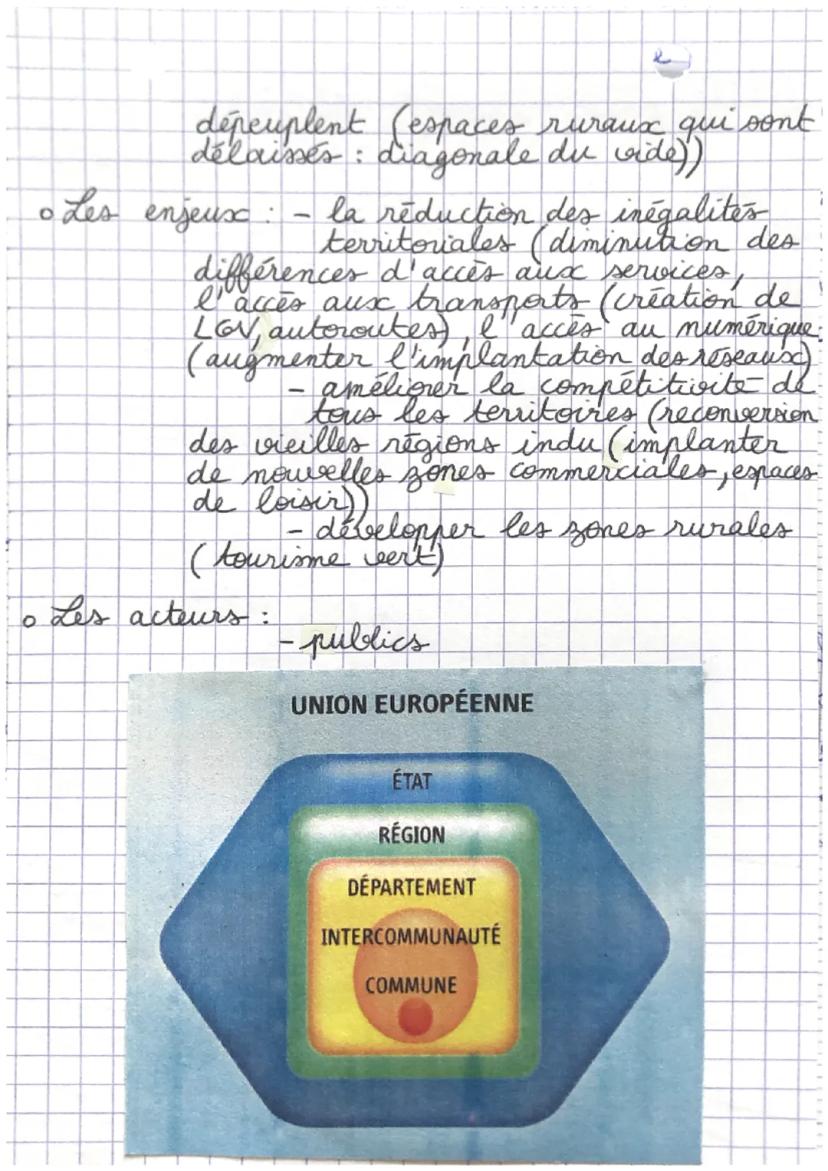 dépeuplent (espaces ruraux qui sont
délaissés : diagonale du vide))
o Les enjeux : - la réduction des inégalités
territoriales (diminution des
différences d'accès aux services,
l'accès aux transports (création de
LGV, autoroutes), l'accès au numérique
(augmenter l'implantation des réseaux)
- améliorer la compétitivité de
tous les territoires (reconversion
des vieilles régions indu (implanter
de nouvelles zones commerciales, espaces
de loisir))
- développer les zones rurales
(tourisme vert)
o Les acteurs :
- publics
UNION EUROPÉENNE
ÉTAT
RÉGION
DÉPARTEMENT
INTERCOMMUNAUTÉ
COMMUNE